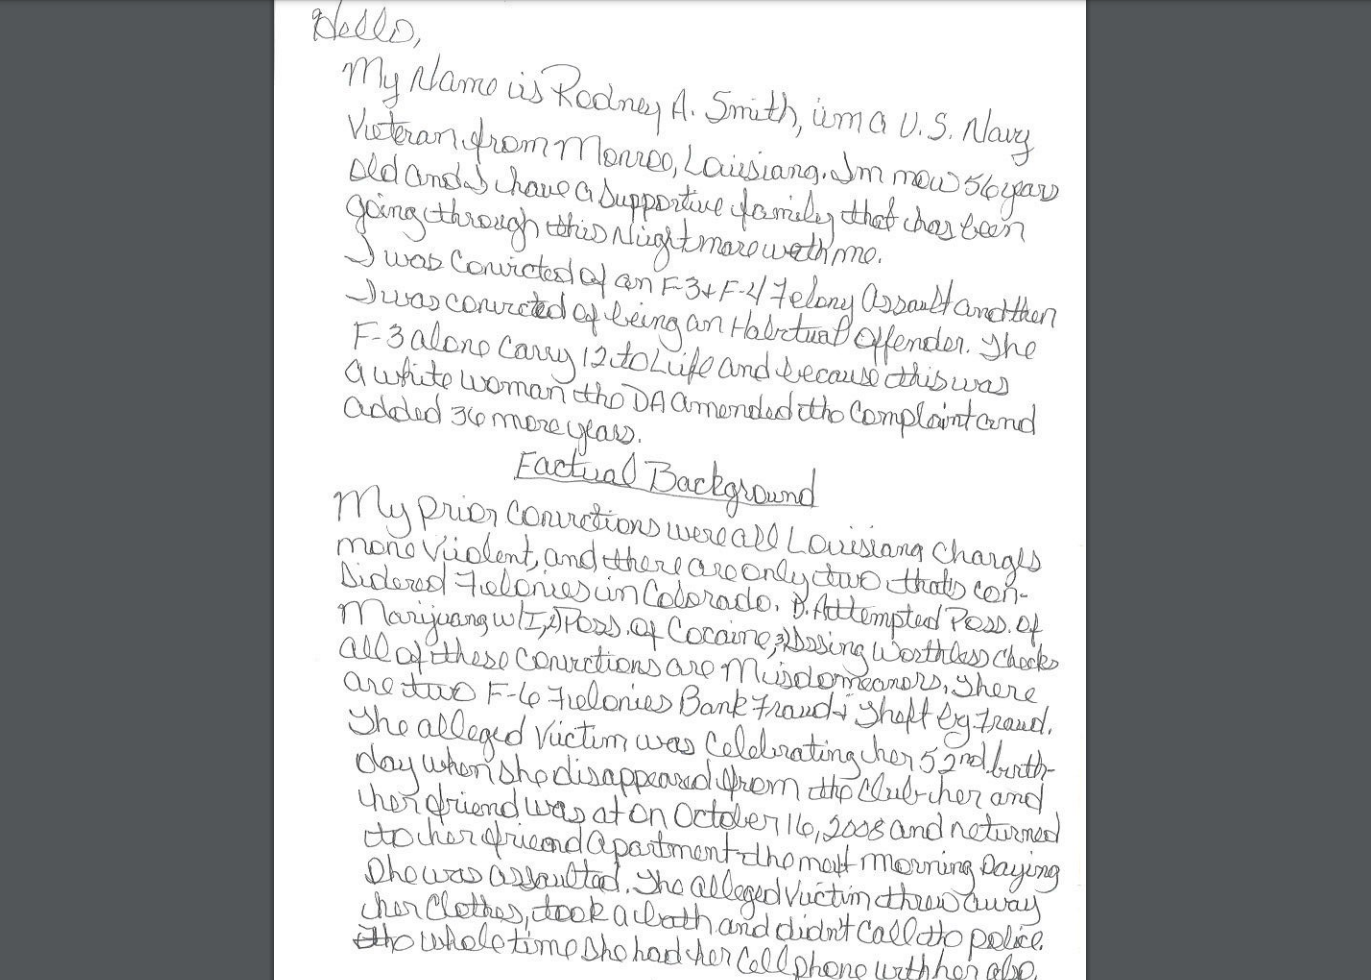 Hello,
My Name is Rodney A. Smith, im a U.S. Navy
Veteran from Monroe, Louisiana. Im now 56 years
old and I have a Supportive family that has been
going through this Nightmare with me.
I was Convicted of an F-3 + F-4 Felony Assault and then
I was convicted of being an Habitual Offender. The
F-3 alone Carry 12 to Life and because this was
a white woman the DA amended the Complaint and
added 36 more years.
Factual Background
My prior Convictions were all Louisiana Charges
none Violent, and there are only two thats con-
sidered Felonies in Colorado. 1). Attempted Poss. of
Marijuana w/I, 2) Poss. of Cocaine, 3) Issing Worthless Checks
all of these Convictions are Misdomeanors, There
are two F-6 Felonies Bank Fraud & Theft by Fraud.
The alleged Victim was Celebrating her 52nd birth-
day when she disappeared from the Club her and
her friend was at on October 16, 2008 and returned
to her friend apartment the next morning Saying
She was assaulted. The alleged Victim threw away
her Clothes, took a bath and didn't Call the police.
the whole time She had her Cell phone with her also.